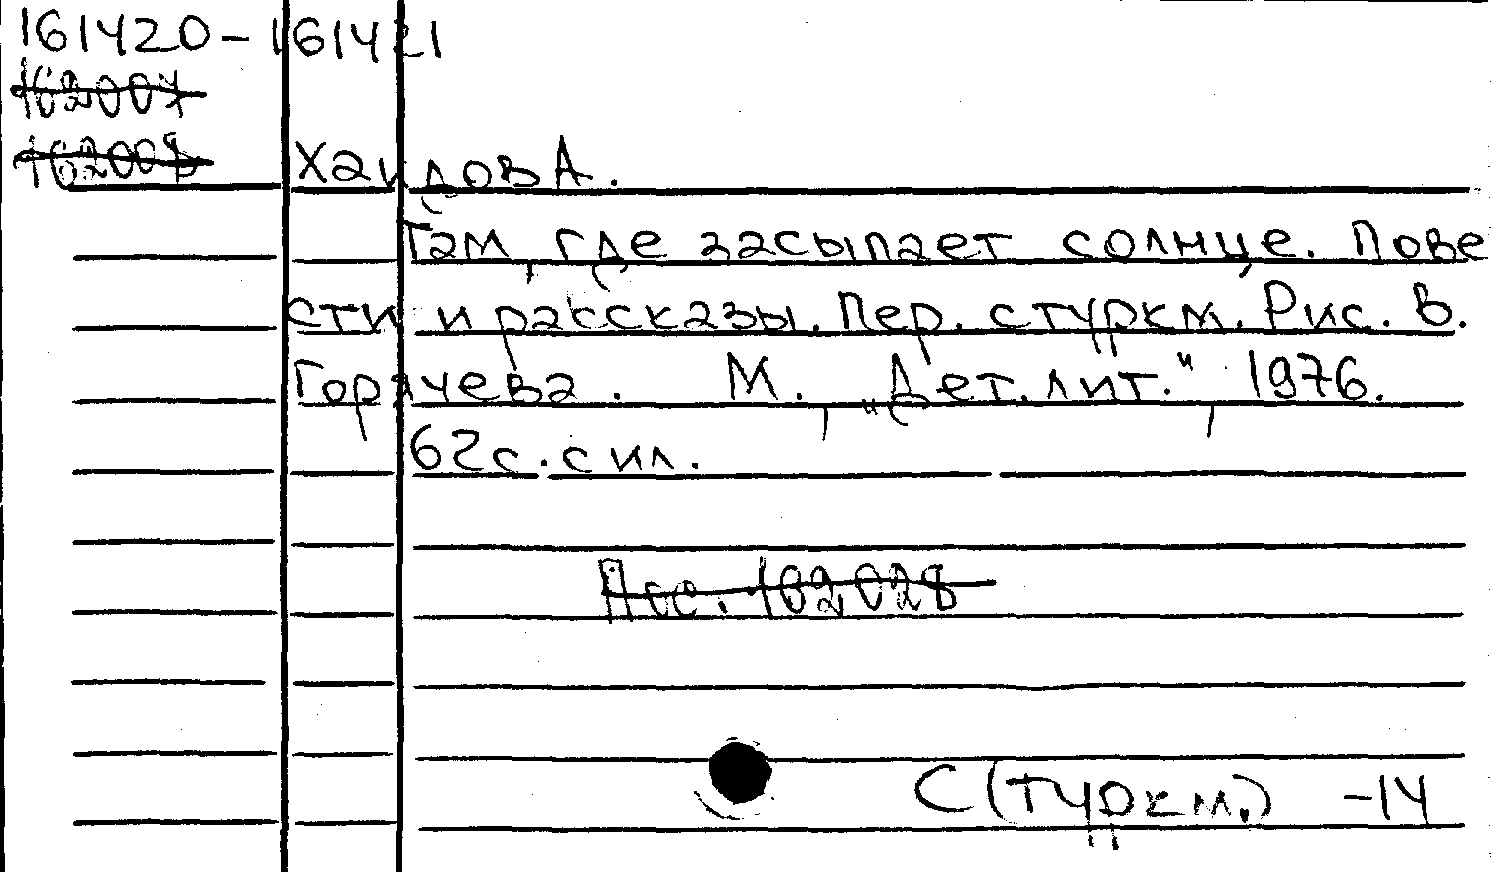 161420-161421
162007
162008
Хаидов А.
Там, где засыпает солнце. Пове
сти и рассказы. Пер. с туркм. Рис. В.
Горячева. М., „Дет. лит.", 1976.
62с. с ил.
Пос. 162028
С(туркм.) -14